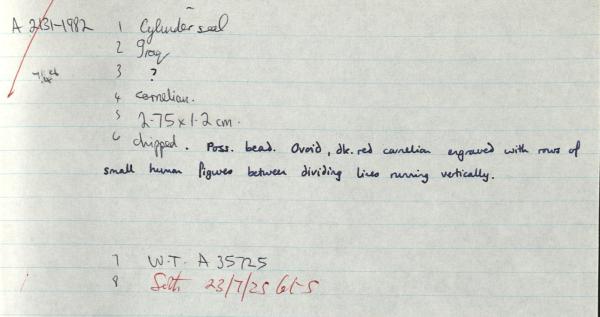 A 2131-1982 1 Cylinder seal
2 Iraq
3 ?
4 carnelian.
5 2.75 x 1.2 cm.
6 chipped. Poss. bead. Ovoid, dk. red carnelian engraved with rows of
small human figures between dividing lines running vertically.
7 W.T. A 35725
8 Soth 23/7/25